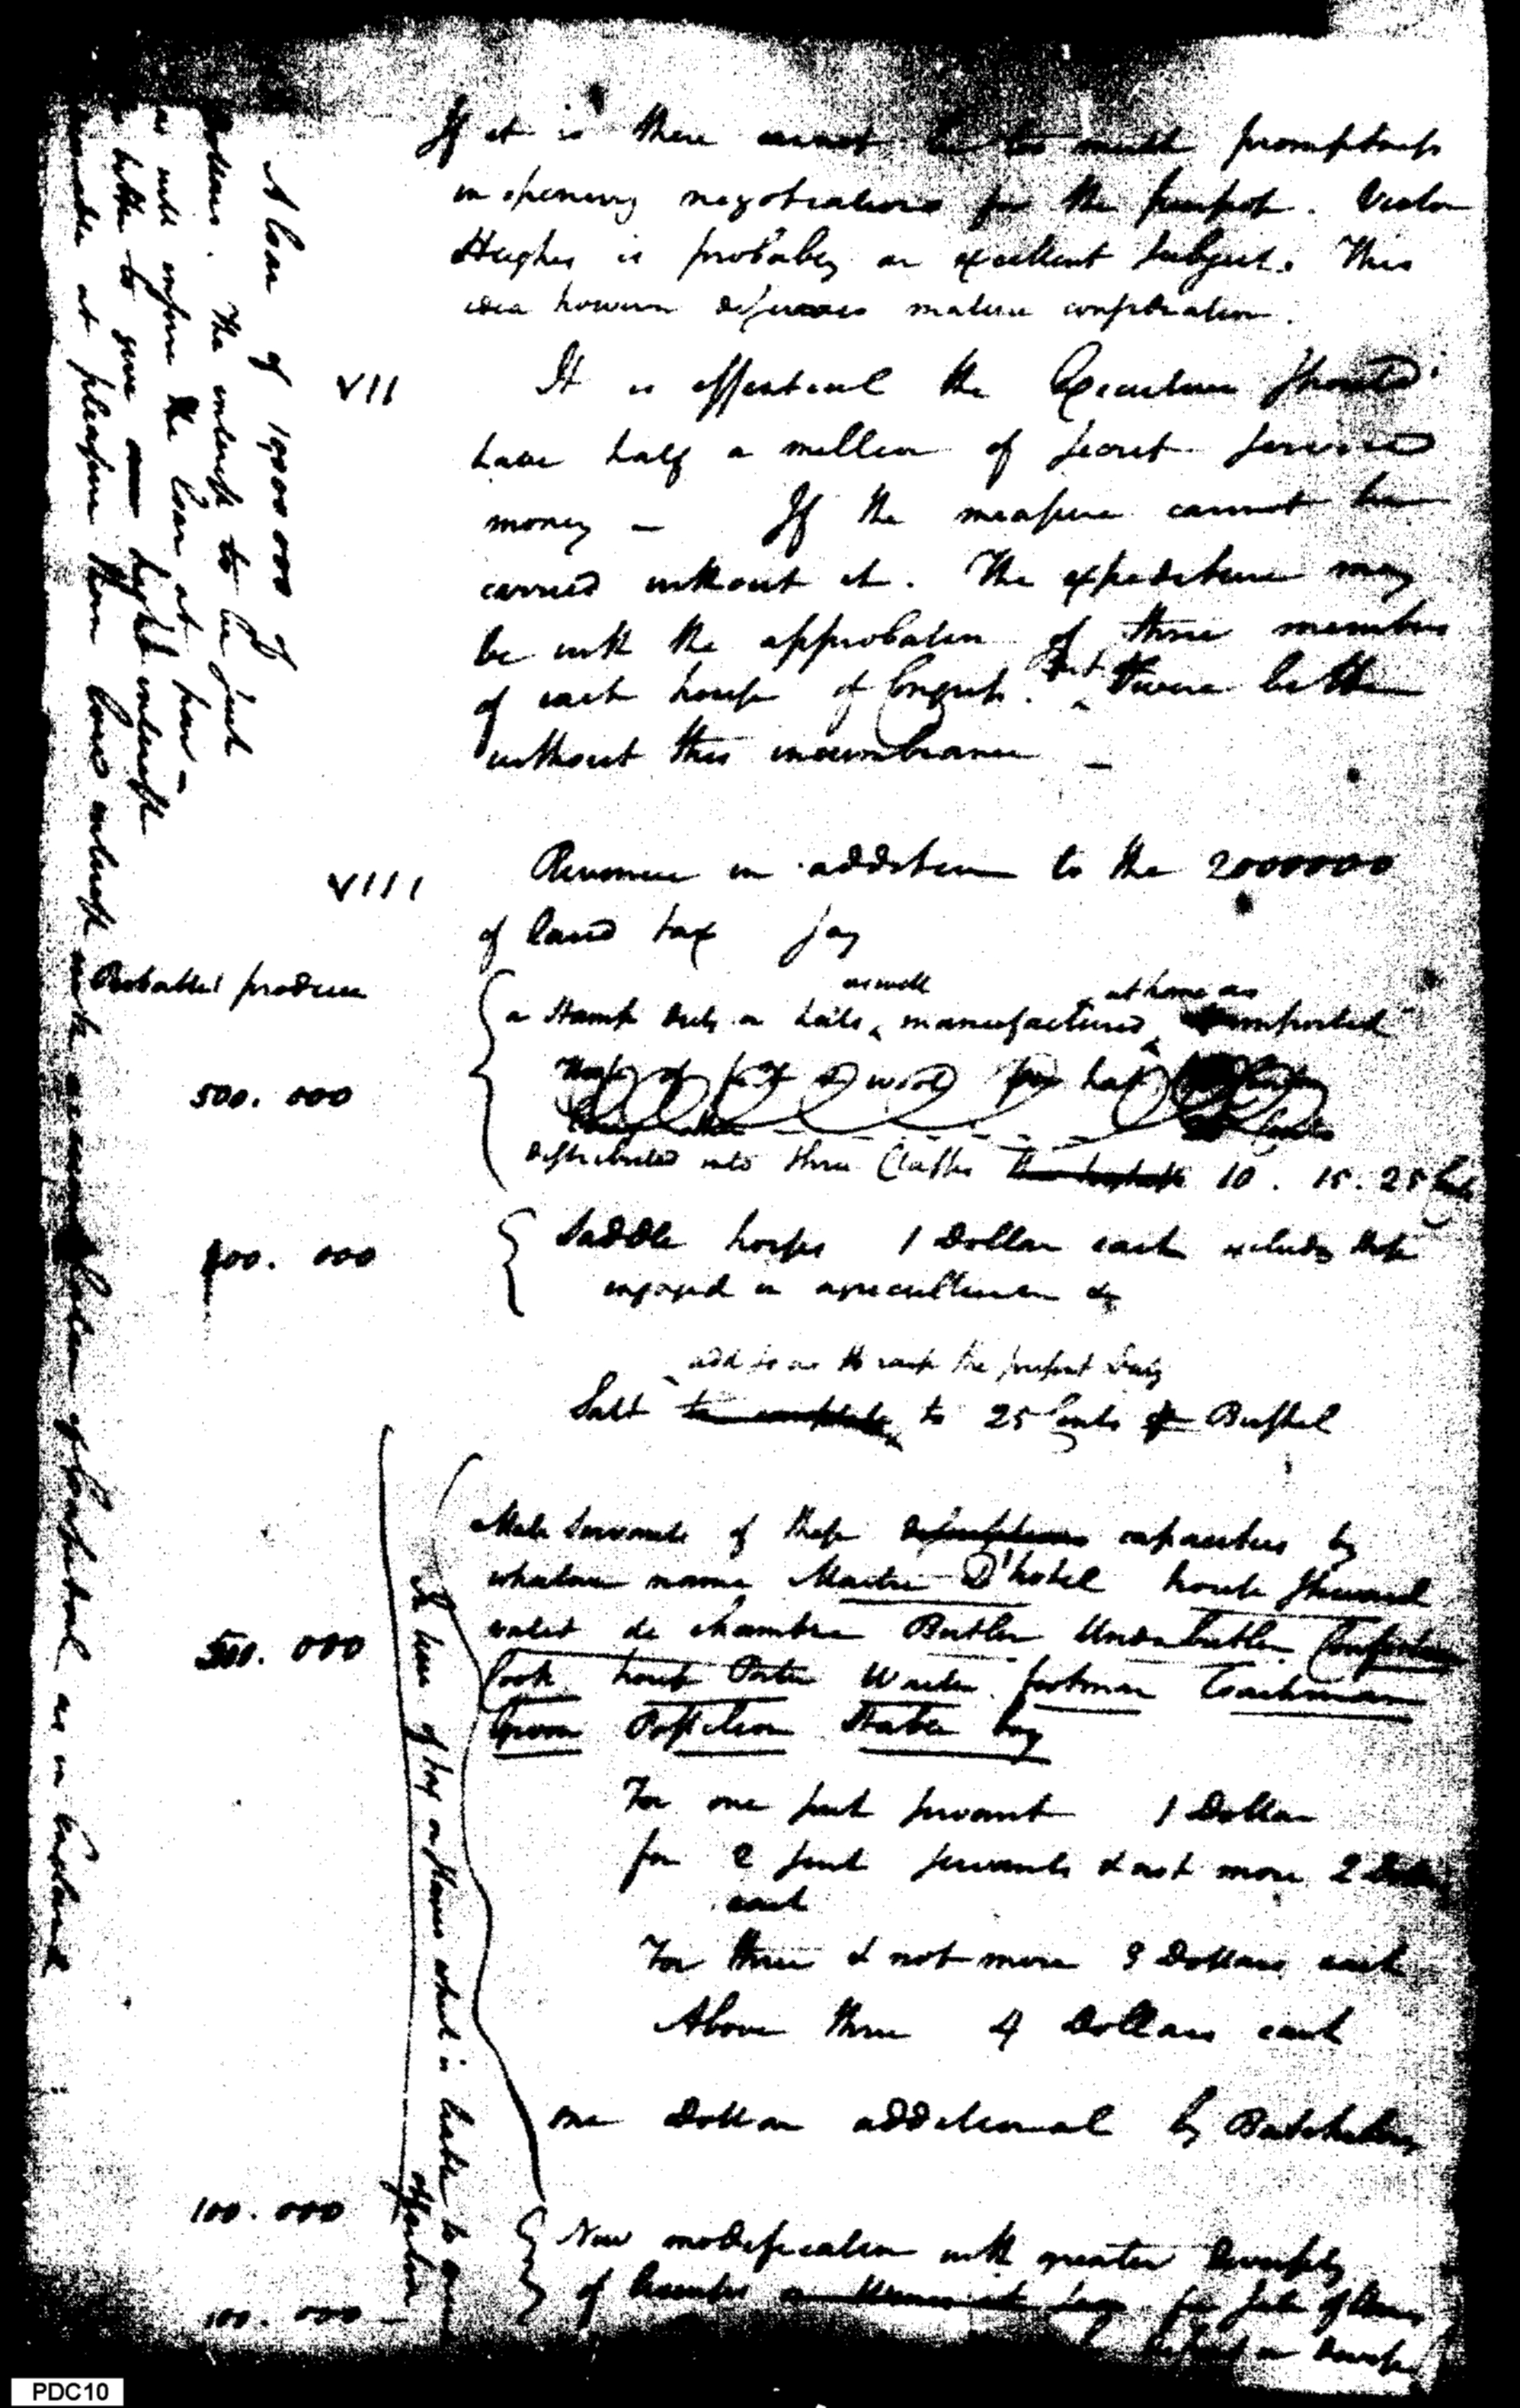 If it is there cannot be too much promptness
in opening negotiations for the purpose. Victor
Hughes is probably an excellent subject. This
idea however deserves mature consideration.
VII It is essential the Executive should
have half a million of secret service
money — If the measure cannot be
carried without it. The expenditure may
be with the approbation of three members
of each house of Congress. But twere better
without this incumbrance —
VIII Revenue in addition to the 2000000
of land tax say
Probable produce
as well at home as
a Stamp duty on hats manufactured imported
500.000
distributed into three Classes 10. 15. 25 Cents
Saddle horses 1 Dollar each excluding those
engaged in agriculture &c
add so as to raise the present duty
Salt to 25 Cents Bushel
Male Servants of these descriptions capacities by
whatever name Maitre D'hotel house Steward
valet de chambre Butler Under butler Confectioner
500.000 Cook house Porter Waiter footman Coachman
Groom Postilion Stable boy
For one such servant 1 Dollar
for 2 such servants & not more 2 Dollars
each
For three & not more 3 Dollars each
Above three 4 Dollars each
one Dollar additional by Batchelors
100.000 New modification with greater diversity
of licenses for sale of Wines
100.000
In lieu of tax on Slaves which is liable to
objection
A loan of 10000000 of
Dollars. The interest to be such
as will insure the loan at par —
better to give high interest
at pleasure than low interest with as in England
PDC10